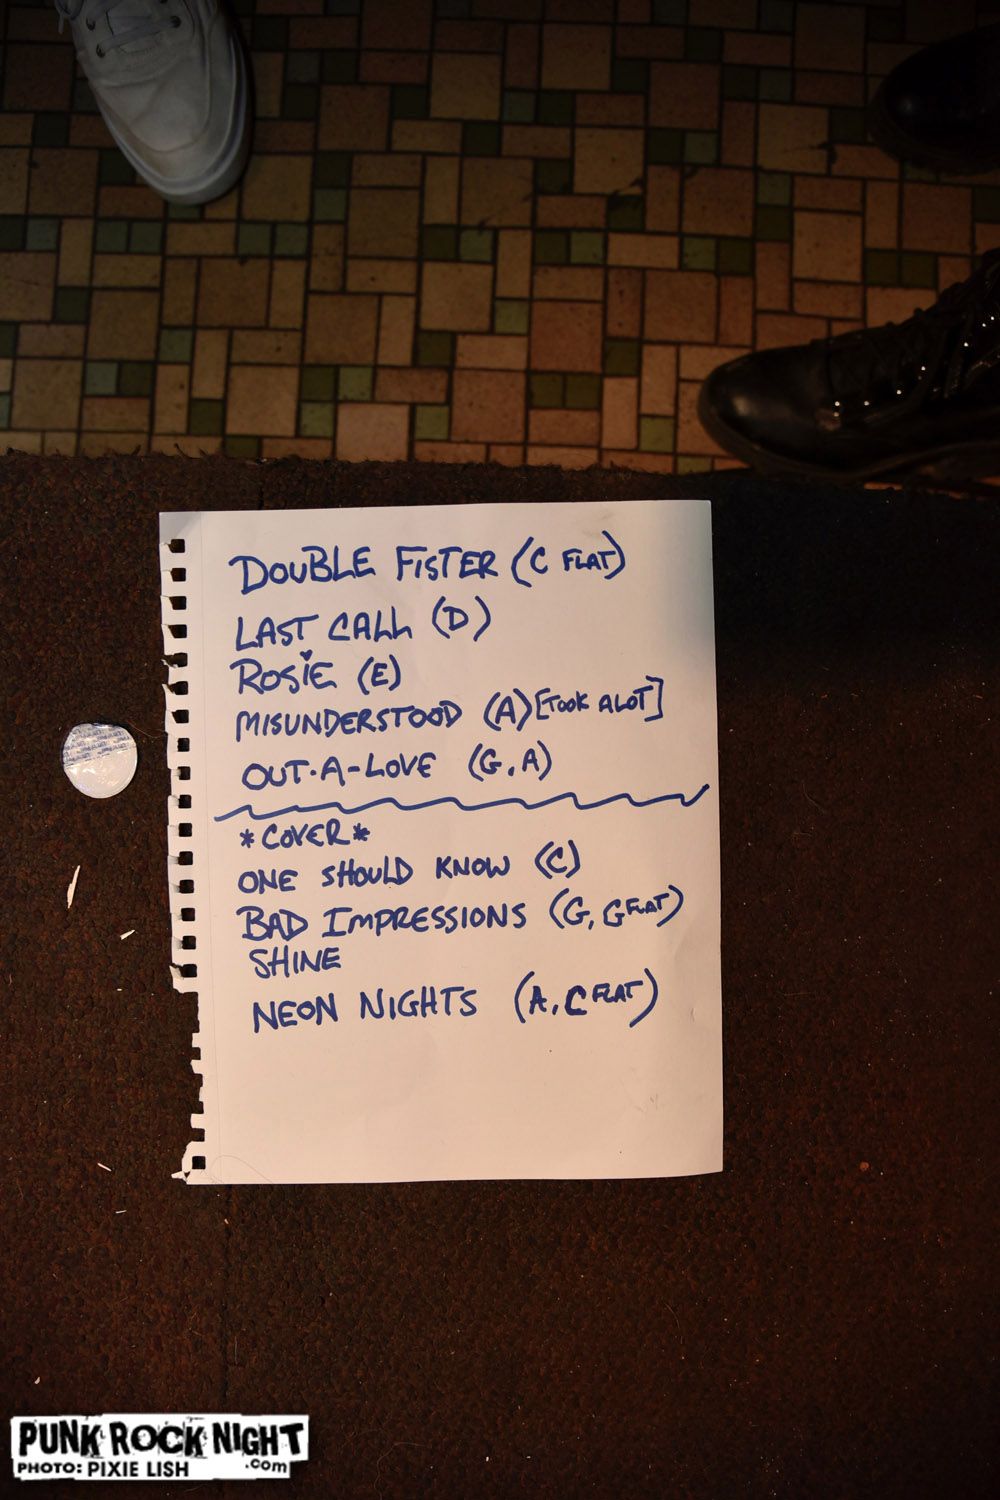 DOUBLE FISTER (C FLAT)
LAST CALL (D)
ROSiE (E)
MISUNDERSTOOD (A) [TOOK ALOT]
OUT-A-LOVE (G, A)
*COVER*
ONE SHOULD KNOW (C)
BAD IMPRESSIONS (G, G FLAT)
SHINE
NEON NIGHTS (A, C FLAT)
PUNK ROCK NIGHT
PHOTO: PIXIE LISH .com